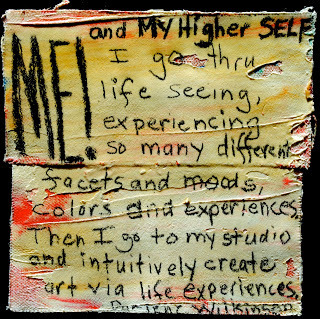 and MY HigHer SELF
ME!
I go thru
life seeing,
experiencing
so many different
facets and moods,
colors and experiences.
Then I go to my studio
and intuitively create
art via life experiences.
Darlene Wilkinson